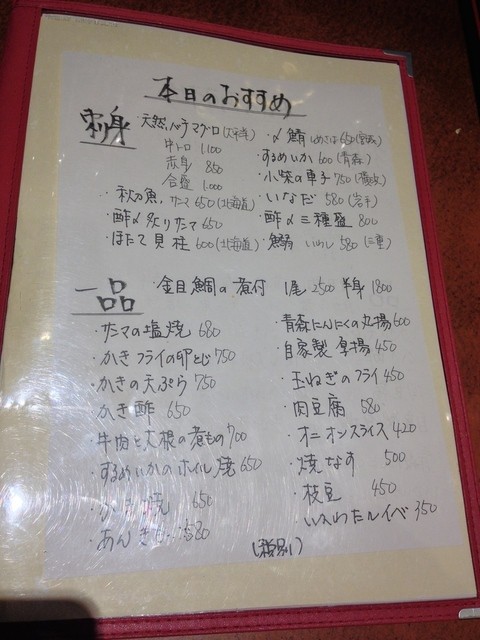 本日のおすすめ
刺身
・天然バチマグロ
中トロ 1,100
赤身 850
合盛 1,000
・秋刀魚 サンマ 650 (北海道)
・酢〆炙りサンマ 650
・ほたて貝柱 600 (北海道)
・〆鯖 しめさば 650
するめいか 600 (青森)
・小柴の 750
・いなだ 580 (岩手)
・酢〆三種盛 800
・鰯 いわし 580 (三重)
一品
・金目鯛の煮付 1尾 2500 半身 1800
・サンマの塩焼 680
・かきフライの卵とじ 750
・かきの天ぷら 750
かき酢 650
・牛肉と大根の煮もの 700
・するめいかのホイル焼 650
焼 650
・あんきも 580
・青森にんにくの丸揚 600
・自家製厚揚 450
・玉ねぎのフライ 450
・肉豆腐 580
・オニオンスライス 420
・焼なす 500
・枝豆 450
・いかわたルイベ 350
(税別)